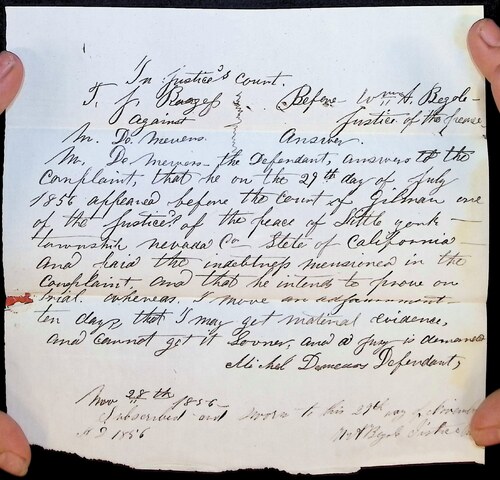 In Justice's Court.
T. J. Before Wm A. Begole
against Justice of the peace
M. Do. Answer
M. Do the defendant, answers to the
Complaint, that he on the 29th day of July
1856 appeared before the Court of Gilman one
of the Justices of the peace of Little york
township Nevada Co State of California
and paid the indebtness mensioned in the
Complaint and that he intends to prove on
trial. whereas. I move an adjournment
ten days that I may get material evidence,
and cannot get it sooner, and a Jury is demand
Michel Defendant,
Nov 28th 1856
Subscribed and sworn to this 29th day of
A D 1856